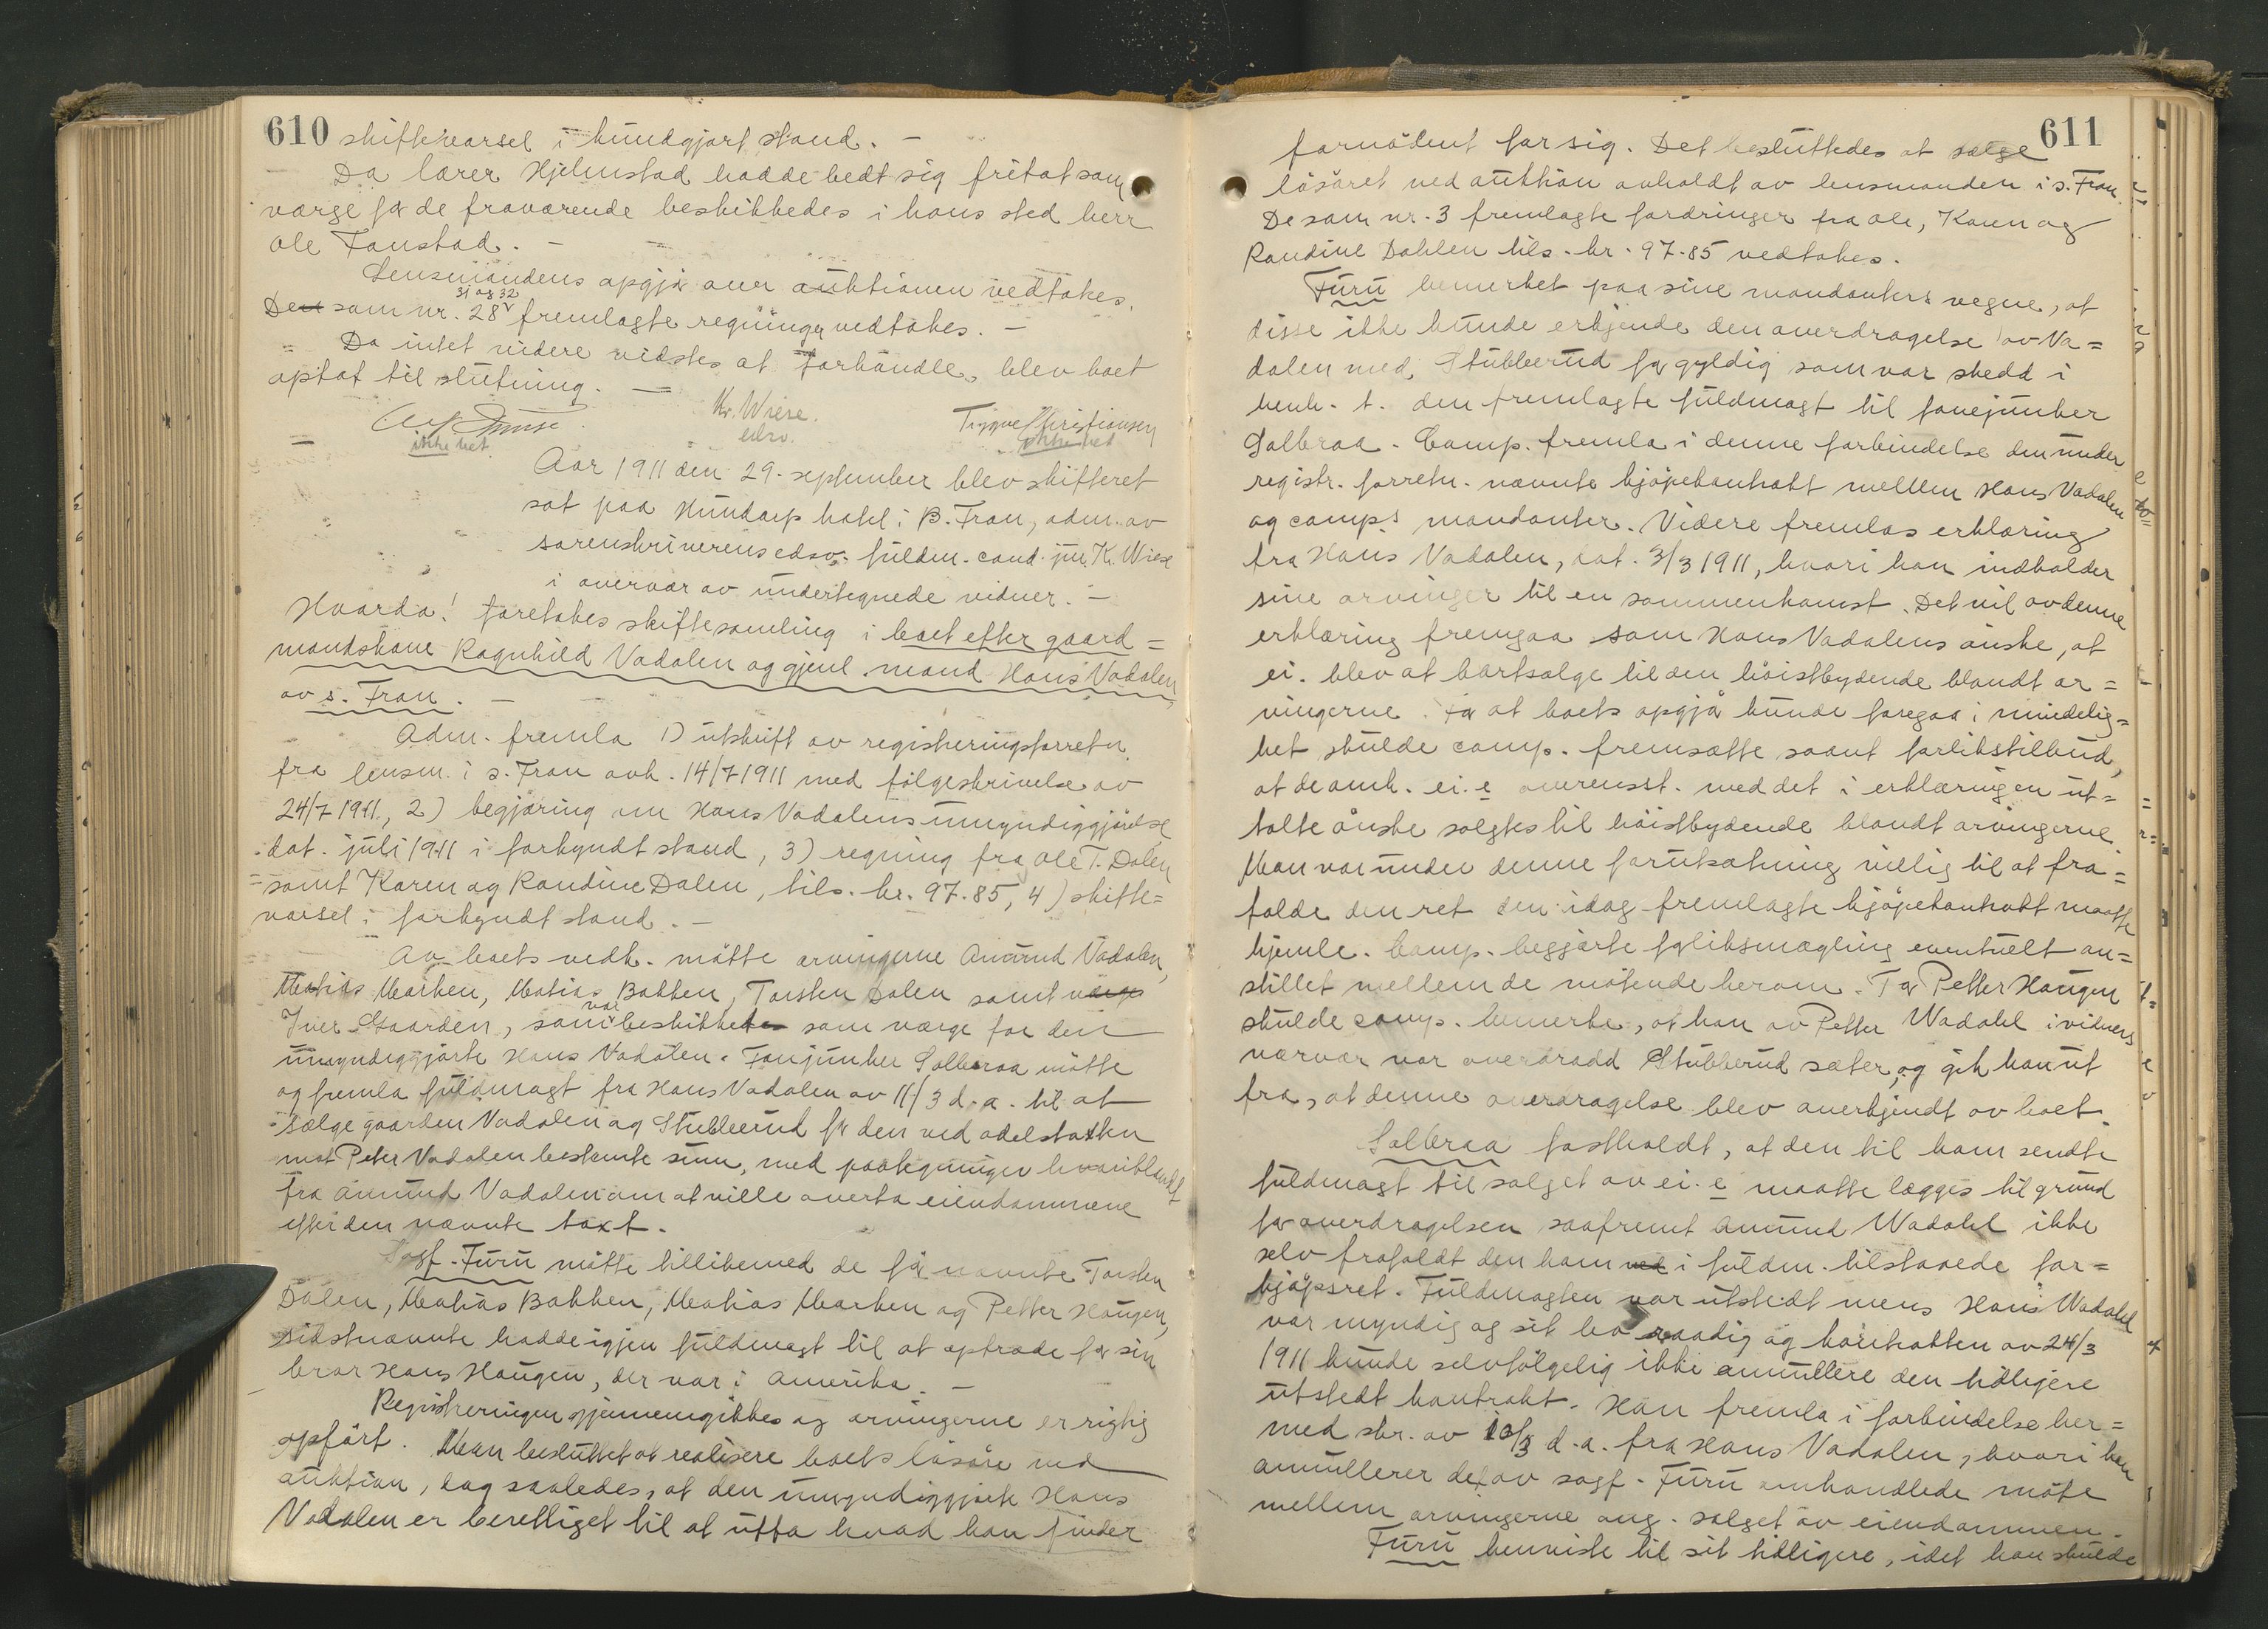 610
skiftevarsel i kundgjort stand. —
Da lærer Hjelmstad hadde bedt sig fritat som
værge for de fraværende beskikkedes i hans sted herr
Ole Tanstad. —
Lensmandens opgjør over auktionen vedtokes.
31 og 32
De som nr. 28 fremlagte regninger vedtokes. —
Da intet videre vidstes at forhandle, blev boet
optat til slutning. —
Kr. Wiese. Trygve Christiansen
ikke bet. edsv. ikke bet
Aar 1911 den 29. september blev skifteret
sat paa Hundorp hotel i S. Fron, adm. av
sorenskriverens edsv. fuldm. cand. jur. K. Wiese
i overvær av undertegnede vidner. —
Hvorda! foretokes skiftesamling i boet efter gaard=
mandskone Ragnhild Vadalen og gjenl. mand Hans Vadalen,
av s. Fron. —
Adm. fremla 1) utskrift av registreringsforretn.
fra lensm. i s. Fron avh. 14/7 1911 med følgeskrivelse av
24/7 1911, 2) begjæring om Hans Vadalens umyndiggjørelse
dat. juli 1911 i forkyndt stand, 3) regning fra Ole T. Dalen
samt Karen og Randine Dalen, tils. kr. 97.85, 4) skifte=
varsel i forkyndt stand. —
Av boets vedk. møtte arvingerne Amund Vadalen,
Mathias Marken, Matias Bakken, Torsten Dalen samt værge
var
Iver Gaarden, som beskikket som værge for den
umyndiggjorte Hans Vadalen. Fanejunker Solbraa møtte
og fremla fuldmagt fra Hans Vadalen av 11/3 d.a. til at
sælge gaarden Vadalen og Stubberud for den ved odelstaksten
mot Peter Vadalen bestemte sum, med paategninger hvoriblandt
fra Amund Vadalen om at ville overta eiendommene
efter den nævnte taxt.
Sagf. Furu møtte tillikemed de før nævnte Torsten
Dalen, Mathias Bakken, Mathias Marken og Petter Haugen,
sidstnævnte hadde igjen fuldmagt til at optræde for sin
bror Hans Haugen, der var i Amerika. —
Registreringen gjennemgikkes og arvingerne er rigtig
opført. Man besluttet at realisere boets løsøre ved
auktion, dog saaledes, at den umyndiggjorte Hans
Vadalen er berettiget til at utta hvad han finder
611
fornødent for sig. Det besluttedes at sælge
løsøret ved auktion avholdt av lensmanden i s. Fron.
De som nr. 3 fremlagte fordringer fra Ole, Karen og
Randine Dahlen tils. kr. 97.85 vedtokes.
Furu bemerket paa sine mandanters vegne, at
disse ikke kunde erkjende den overdragelse av Va=
dalen med Stubberud for gyldig som var skedd i
henh. t. den fremlagte fuldmagt til fanejunker
Solbraa. Comp. fremla i denne forbindelse den under
registr. forretn. nævnte kjøpekontrakt mellem Hans Vadalen
og comp.s mandanter. Videre fremlas erklæring
fra Hans Vadalen, dat. 3/3 1911, hvori han indkalder
sine arvinger til en sammenkomst. Det vil av denne
erklæring fremgaa som Hans Vadalens ønske, at
ei. blev at bortsælge til den høistbydende blandt ar=
vingerne. For at boets opgjør kunde foregaa i mindelig=
het skulde comp. fremsætte saant forlikstilbud,
at de omh. ei.e overensst. med det i erklæringen ut=
talte ønske solgtes til høistbydende blandt arvingerne.
Man var under denne forutsætning villig til at fra=
falde den ret den idag fremlagte kjøpekontrakt maatte
hjemle. Comp. begjærte forliksmægling eventuelt an=
stillet mellem de møtende herom. For Petter Haugen
skulde comp. bemerke, at han av Petter Wadahl i vidners
nærvær var overdradd Stubberud sæter, og gik han ut
fra, at denne overdragelse blev anerkjendt av boet.
Solbraa fastholdt, at den til ham sendte
fuldmagt til salget av ei.e maatte lægges til grund
for overdragelsen saafremt Amund Wadahl ikke
selv frafaldt den ham ved i fuldm. tilstaaede for=
kjøpsret. Fuldmagten var utstedt mens Hans Wadahl
var myndig og sit bo raadig og kontrakten av 24/3
1911 kunde selvfølgelig ikke annullere den tidligere
utstedt kontrakt. Han fremla i forbindelse her=
med skr. av 10/3 d.a. fra Hans Vadalen, hvori han
annullerer det av sagf. Furu omhandlede møte
mellem arvingerne ang. salget av eiendommen.
Furu henviste til sit tidligere, idet han skulde